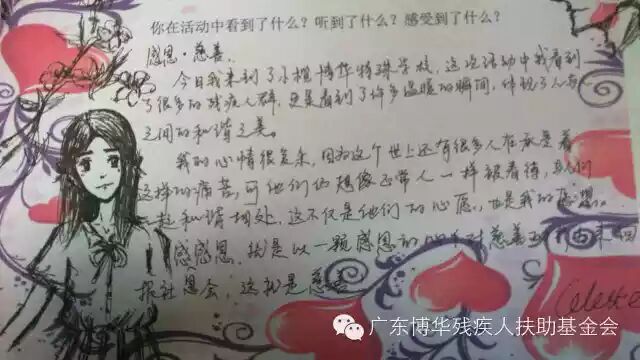 你在活动中看到了什么？听到了什么？感受到了什么？
感恩·慈善。
今日我来到了小榄博华特殊学校，这次活动中我看到
了很多的残疾人群，更是看到了许多温暖的瞬间，体现了人与人
之间的和谐之美。
我的心情很复杂，因为这个世上还有很多人在承受着
这样的痛苦，可他们仍想像正常人一样被看待，与人们
一起和谐相处，这不仅是他们的心愿，也是我的愿望。
感恩，就是以一颗感恩的心 对慈善 回
报社会，这就是慈善
Celeste
广东博华残疾人扶助基金会